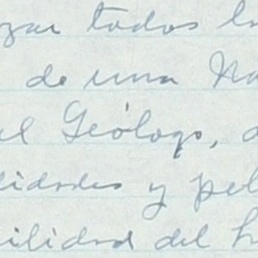 zar todos l
de una Na
el Geólogo, d
lidades y pel
ilidad del h